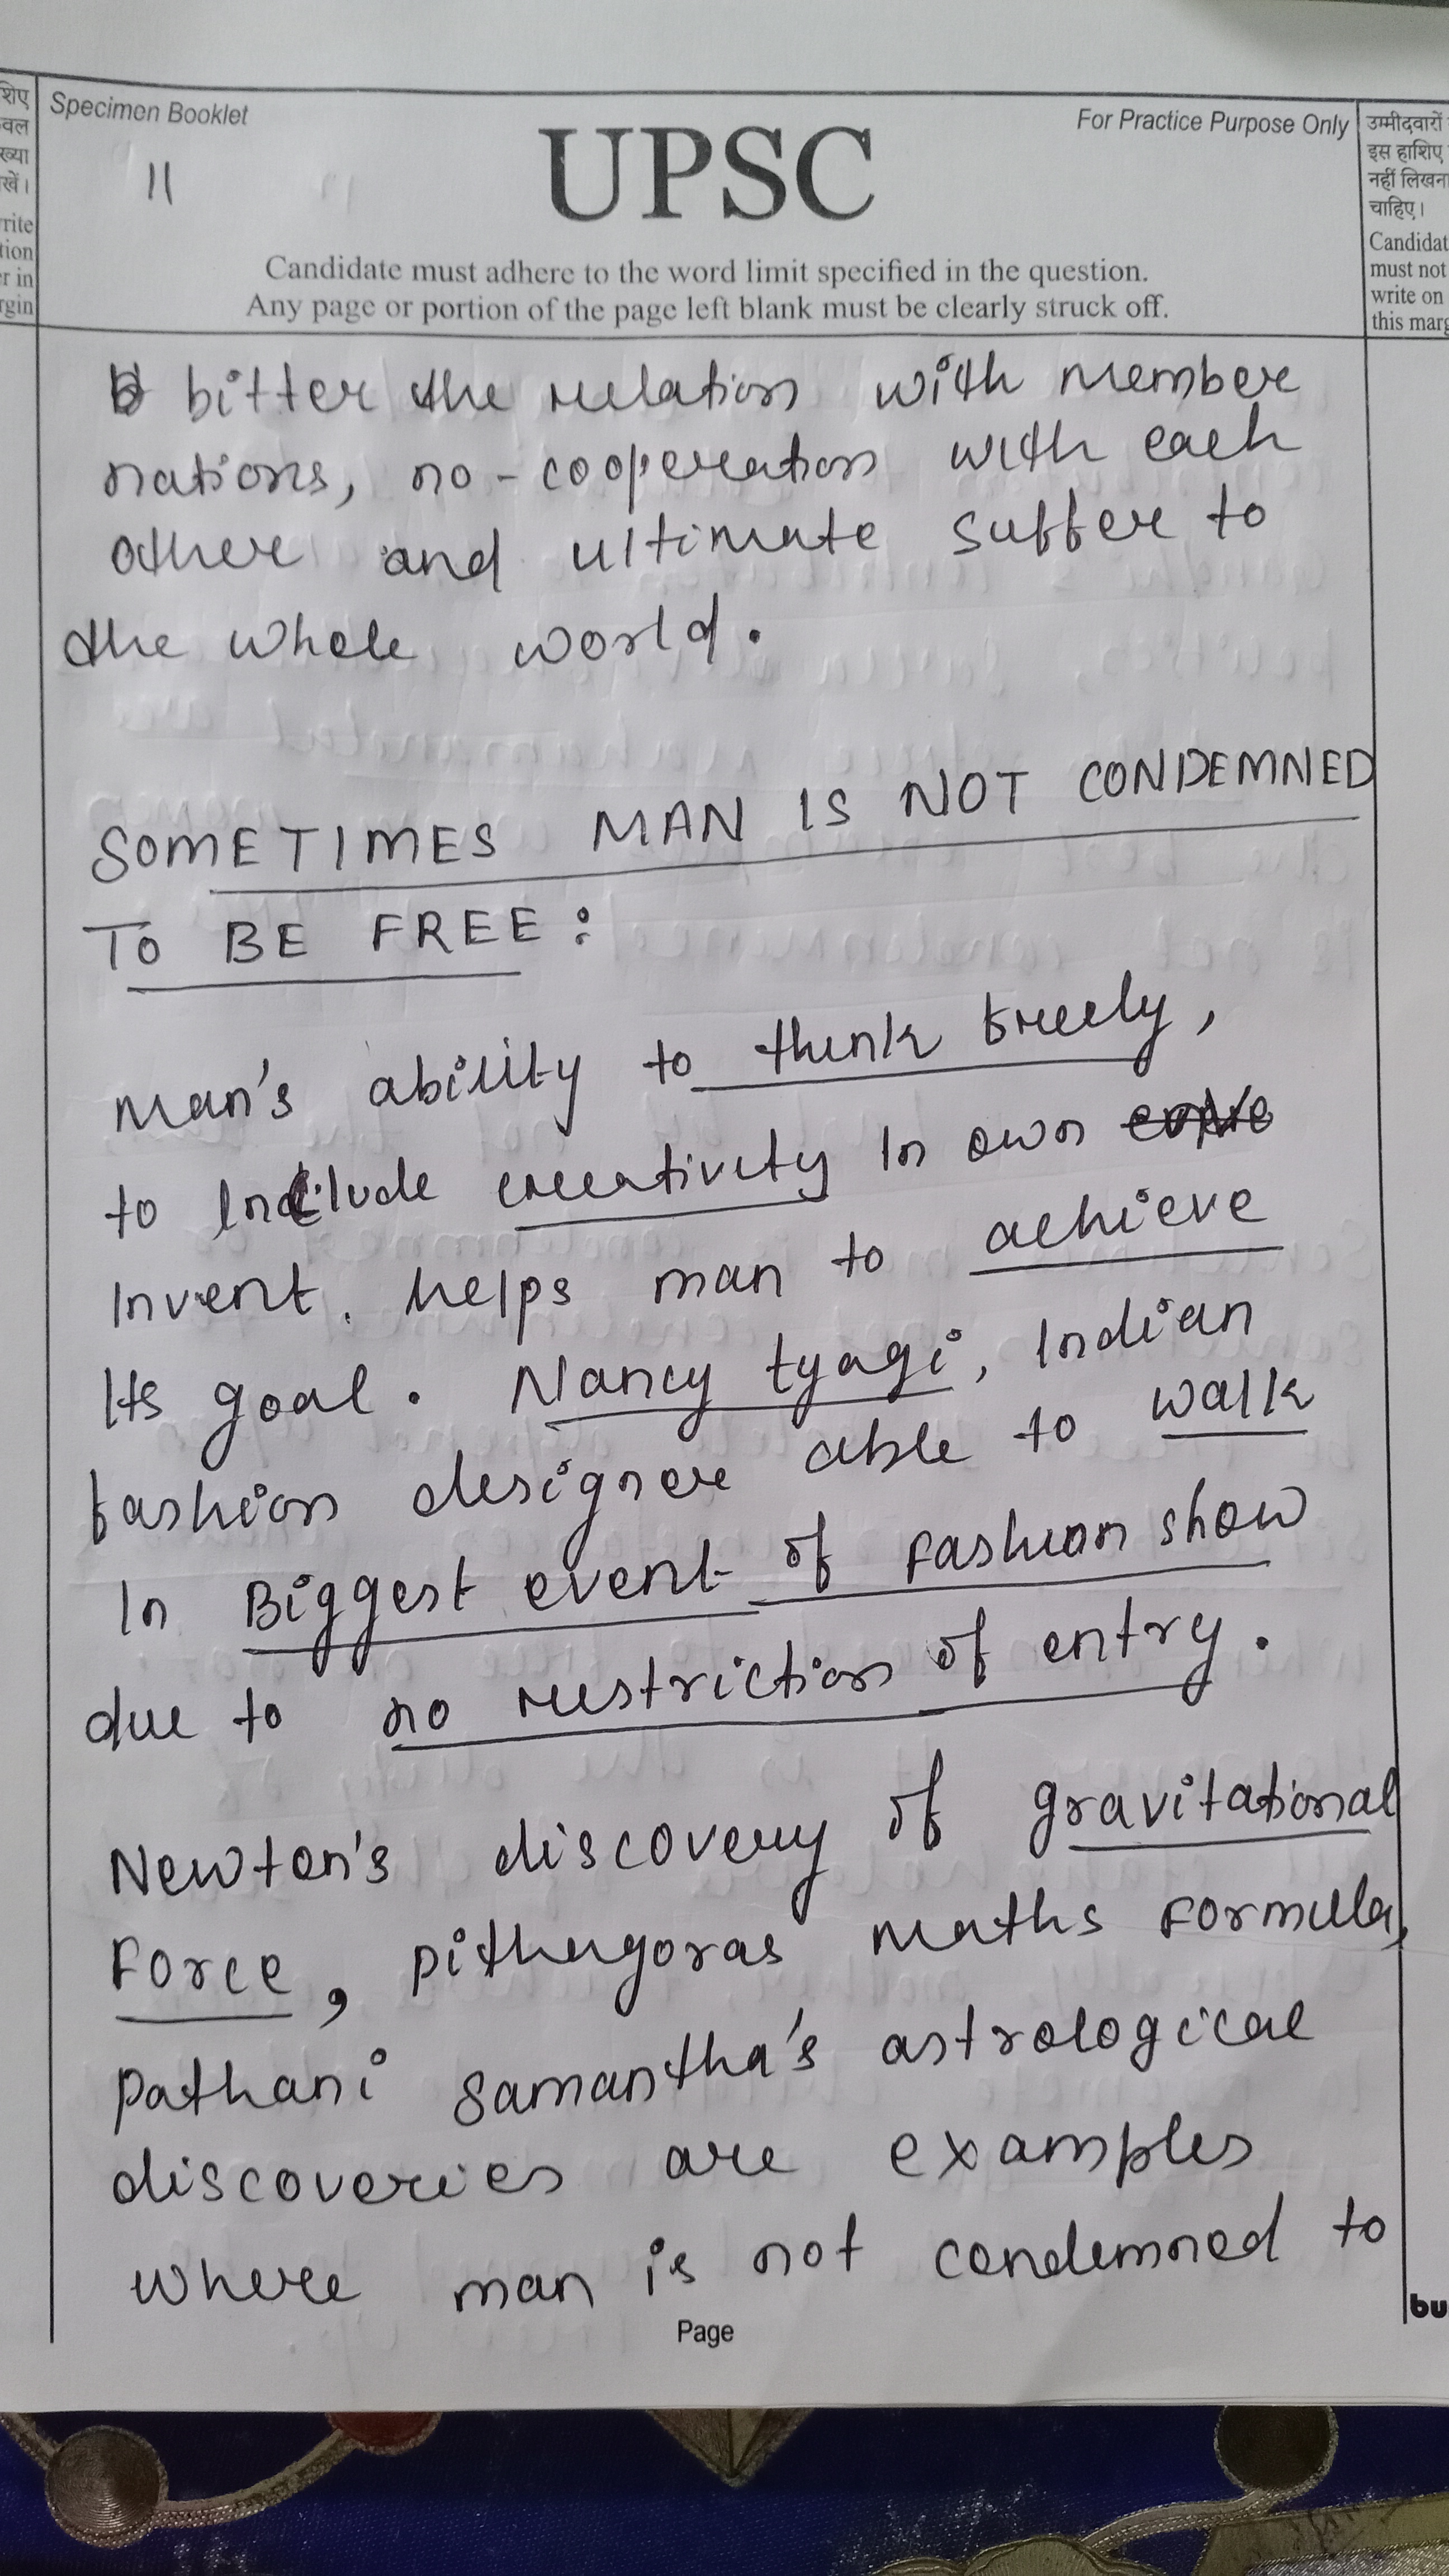 शिए
वल
ख्या
खें।
rite
tion
er in
rgin
Specimen Booklet
For Practice Purpose Only
11
UPSC
Candidate must adhere to the word limit specified in the question.
Any page or portion of the page left blank must be clearly struck off.
उम्मीदवारों
इस हाशिए
नहीं लिखना
चाहिए।
Candidat
must not
write on
this marg
bitter the relation with member
nations, no-cooperation with each
other and ultimate suffer to
the whole world.
SOMETIMES MAN IS NOT CONDEMNED
TO BE FREE:
Man's ability to think freely,
to Include creativity In own
Invent, helps man to achieve
Its goal. Nancy tyagi, Indian
fashion designer able to walk
In Biggest event of Fashion show
due to no restriction of entry.
Newton's discovery of gravitational
Force, pithagoras maths Formula,
pathani samantha's astrological
discoveries are examples
where man is not condemned to
Page
bu